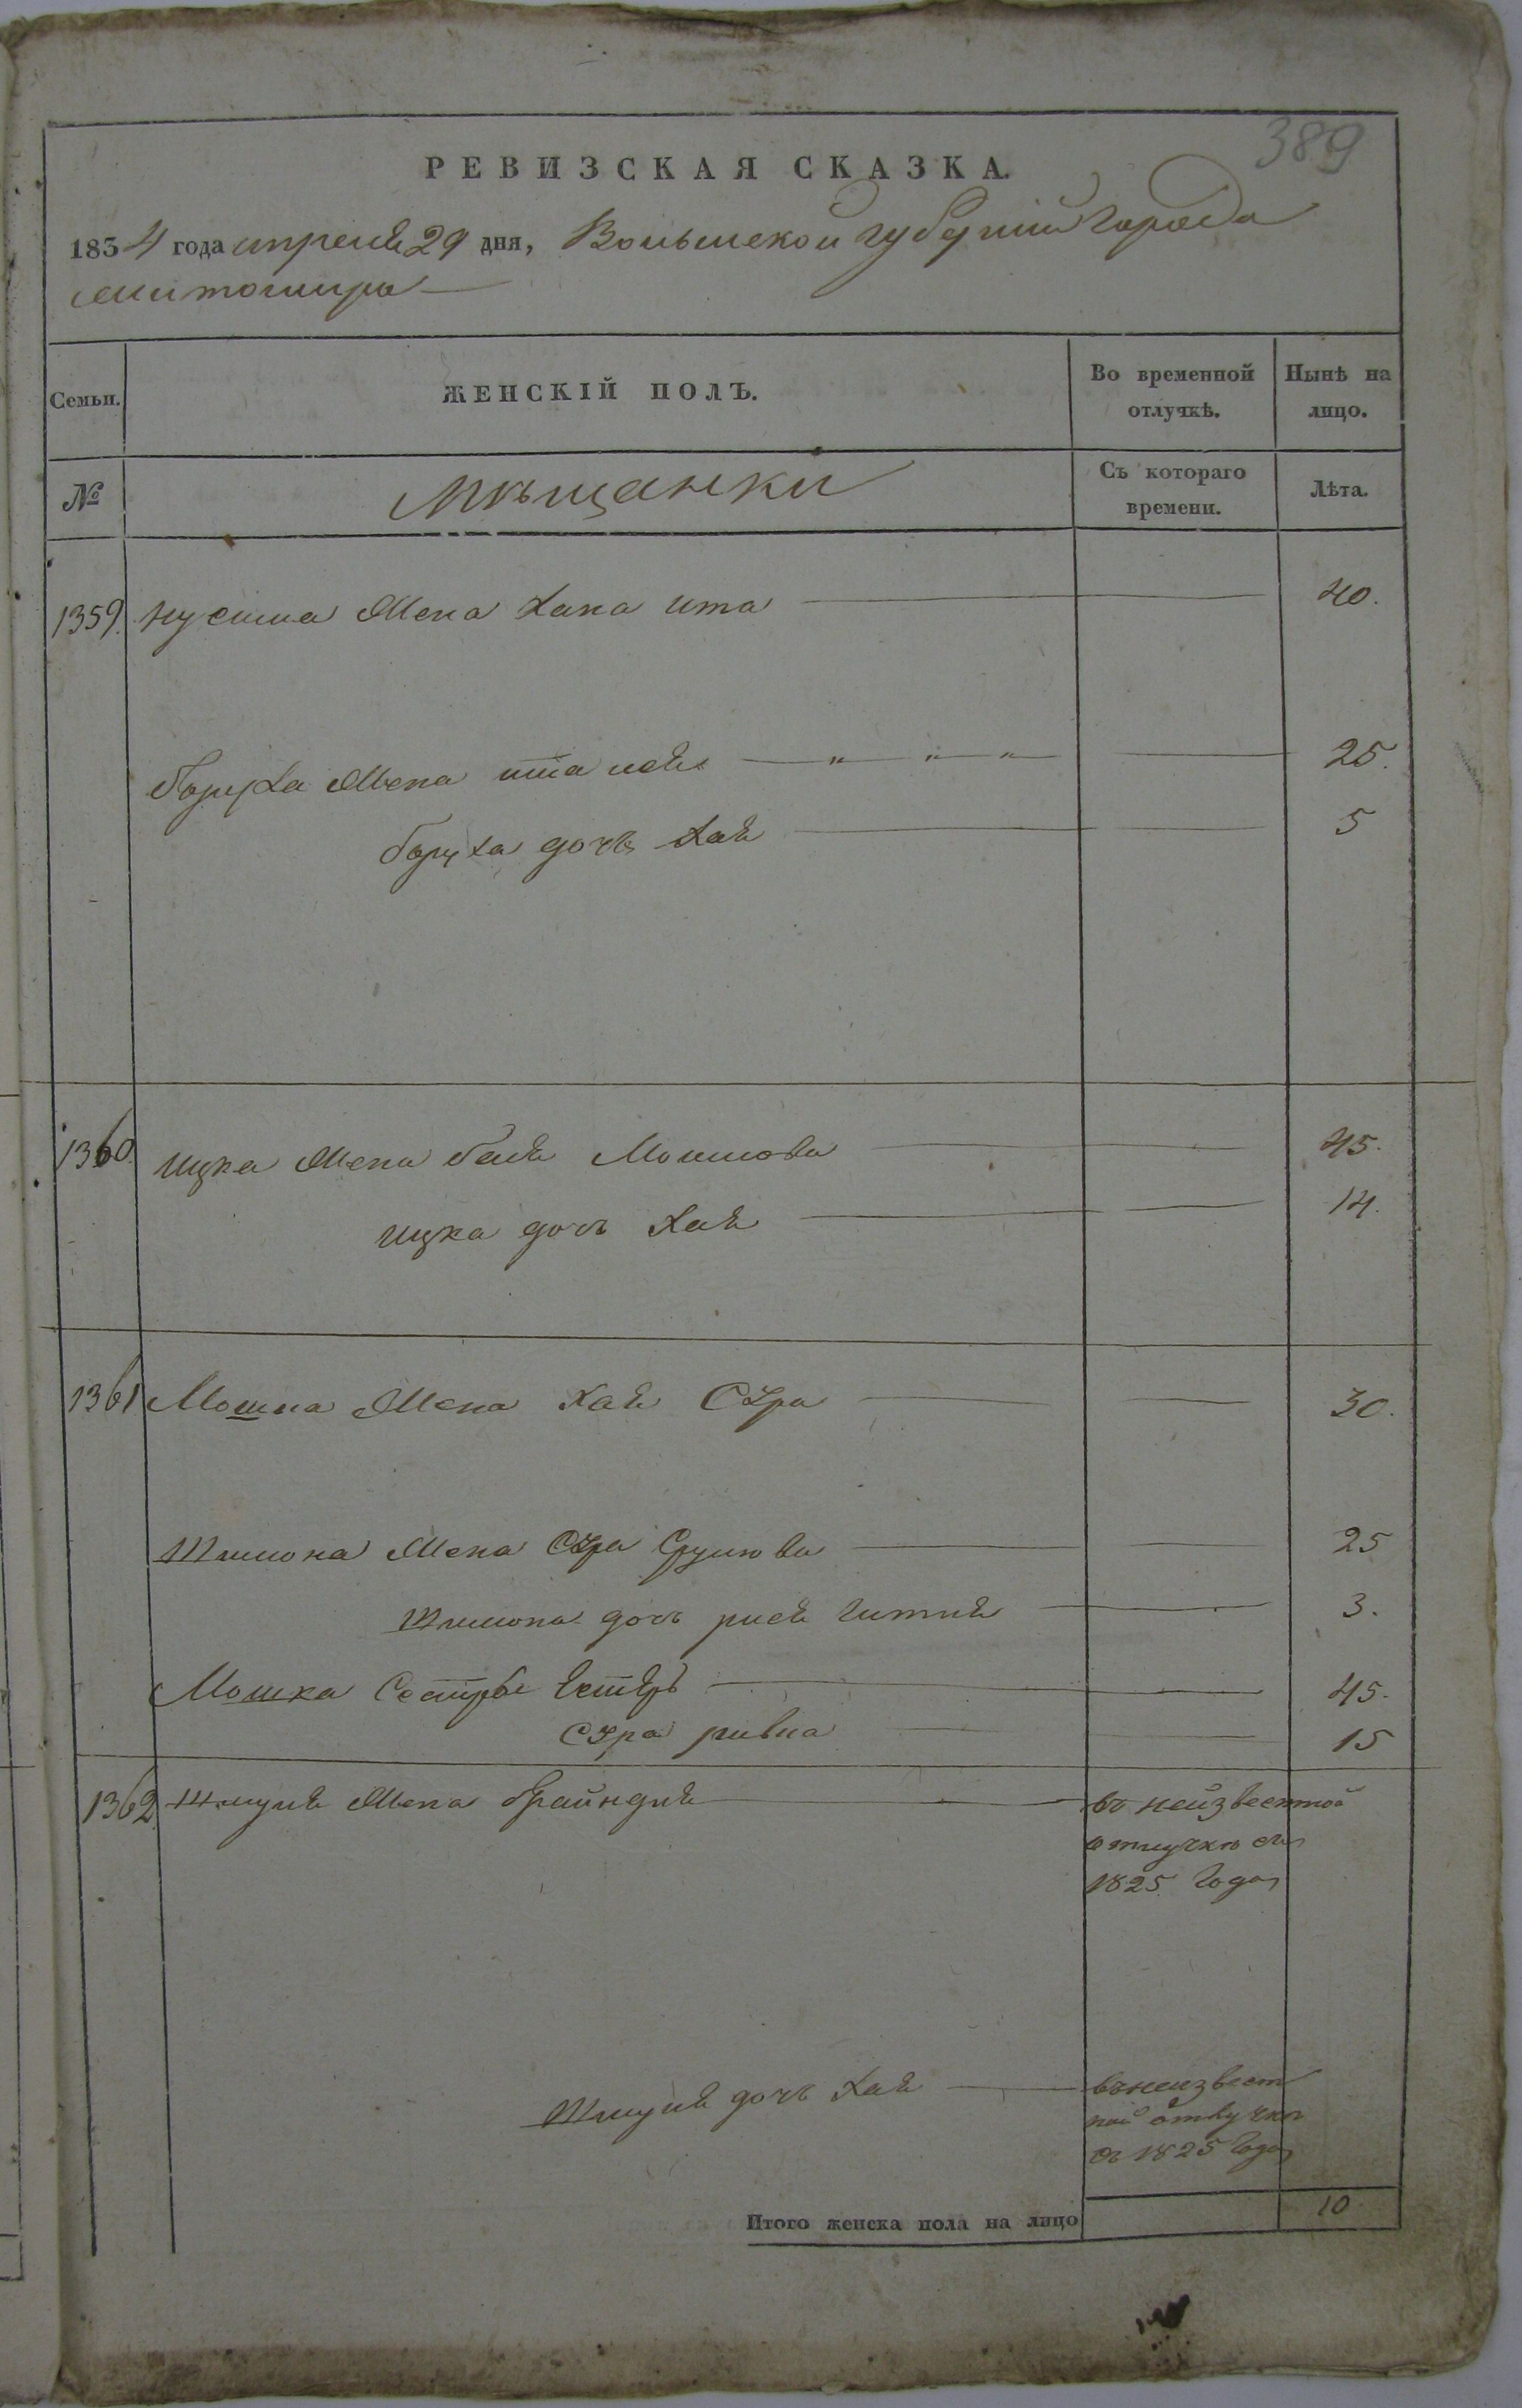 389
РЕВИЗСКАЯ СКАЗКА.
1834 года апреля 29 дня, Волынской губернии города
Житомира
Семьи. ЖЕНСКІЙ ПОЛЪ. Во временной отлучкѣ. Нынѣ на лицо.
№ Мѣщанки Съ котораго времени. Лѣта.
1359. Нусина жена Хана Ита 40.
Боруха жена Ита Лея 25.
Боруха дочь Хая 5
1360. Ицка жена Бейля Мошкова 45.
Ицка дочь Хая 14.
1361 Мошка жена Хая Сура 30.
Шимона жена Сура Срулова 25
Шимона дочь Рися Гитля 3.
Мошка сестры Естеръ 45.
Сура Ривка 15
1362. Шмуля жена Брайндля въ неизвестной
отлучкѣ съ
1825 года
Шмуля дочь Хая въ неизвест
ной отлучкѣ
съ 1825 года
Итого женска пола на лицо 10